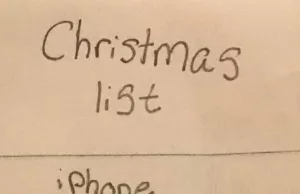 Christmas
list
iphone